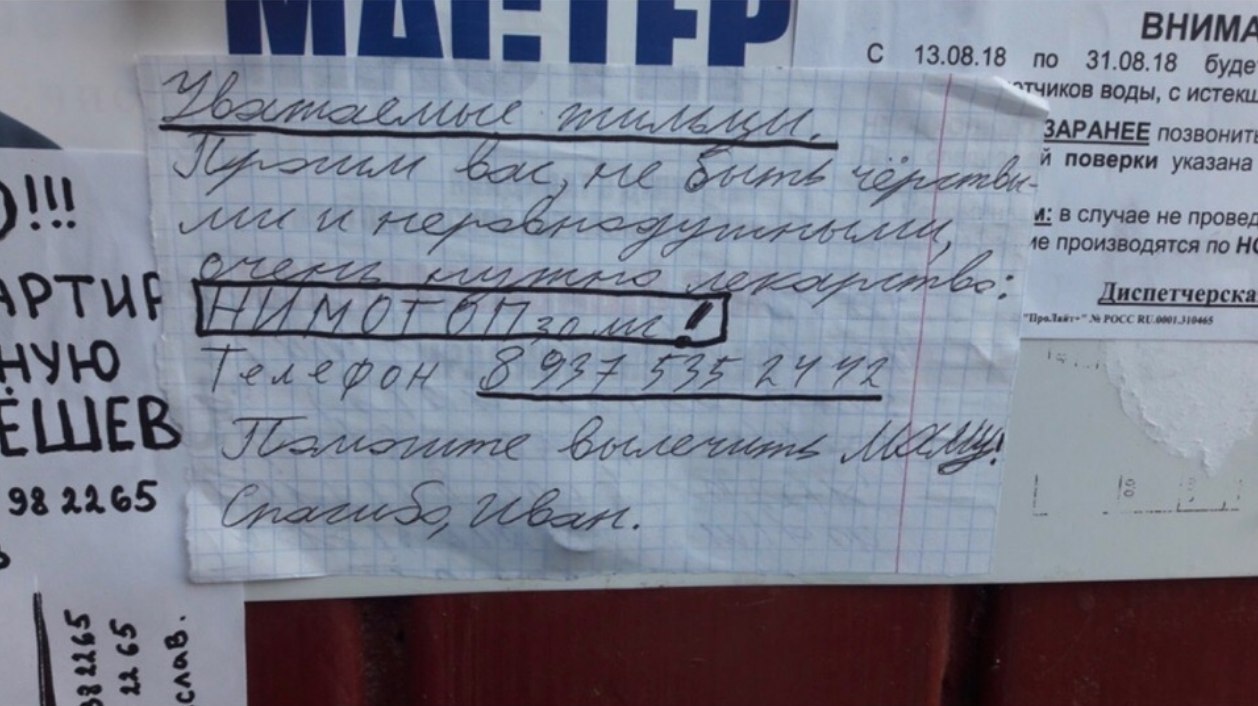 МАСТЕР
Уважаемые жильцы.
Просим вас, не быть чёрствы-
ми и неравнодушными,
очень нужно лекарство:
НИМОТОП 30 мг!
Телефон 8 937 535 24 42
Помогите вылечить маму!
Спасибо, Иван.
ВНИМА
С 13.08.18 по 31.08.18 буде
тчиков воды, с истекш
ЗАРАНЕЕ позвонить
й поверки указана
м: в случае не провед
ие производятся по НО
Диспетчерска
"ПроЛайт+" № РОСС RU.0001.310465
)!!!
АРТИР
НУЮ
ЁШЕВ
982265
982265
2265
слав.